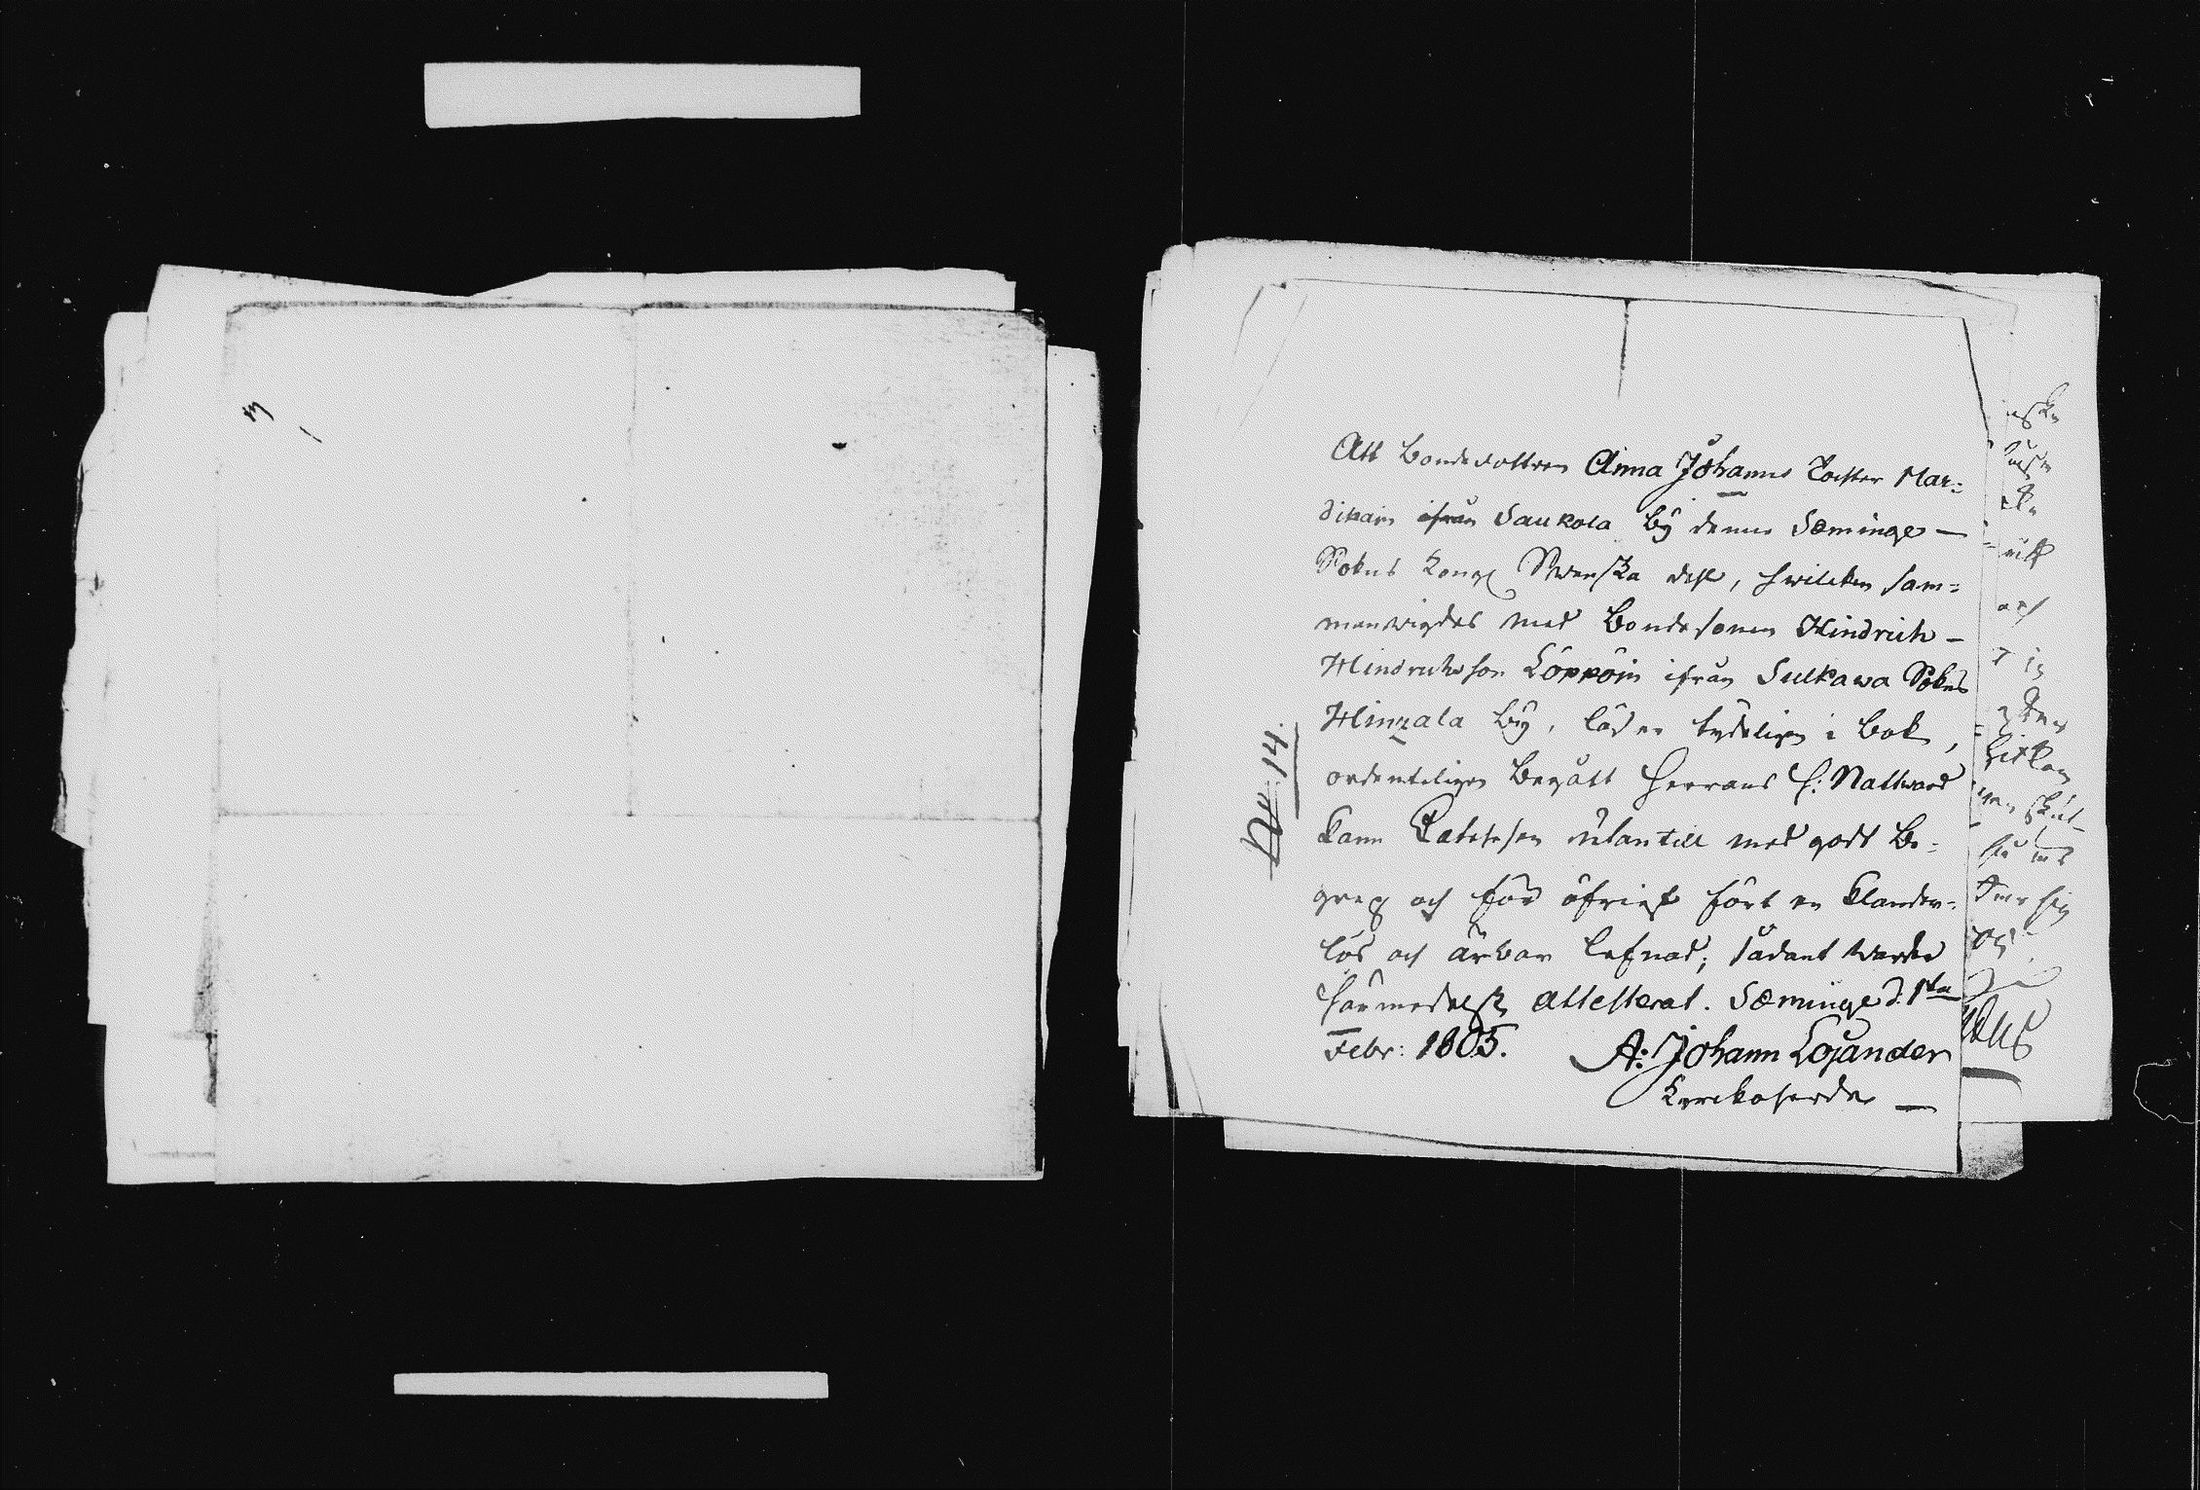 Att Bondedottren Anna Johans Dotter Mar=
dikain ifrån Saukola By denne Sæminge —
Sokns Kongl Swenska del, hwilcken sam=
manwigdes med Bondesonen Hindrich —
Hindrichsson Löppöin ifrån Sulkawa Sokns
Hinzala By, läser tydeligen i Bok,
ordenteligen Begått Herrans H: Nattward
Kann Catechesen utantill med godt Be=
grep och för öfrigt fört en Klander=
lös och ärbar lefnad; sådant warder
härmedelst attesterat. Sæminge d. 1sta
Febr: 1805. A: Johann Cojander
Kyrckoherde —
No 14.